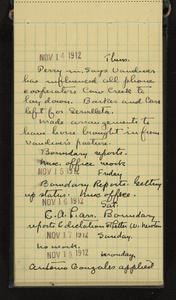 NOV 14 1912 Thurs.
Perry in. Says Vandiver
has influenced all phone
cooperators Cow Creek to
lay down. Barker and Case
left for Servilleta.
Made arrangements to
have horse brought in from
Vandiver's pasture.
Boundary reports.
Misc. office work
NOV 15 1912 Friday
Boundary Reports. Getting
up status. Misc office.
NOV 16 1912 Sat.
C. A. Farr. Boundary
reports & dictation & letter W. Newton
NOV 17 1912 Sunday.
No work.
NOV 18 1912 Monday.
Antonio Gonzales applied